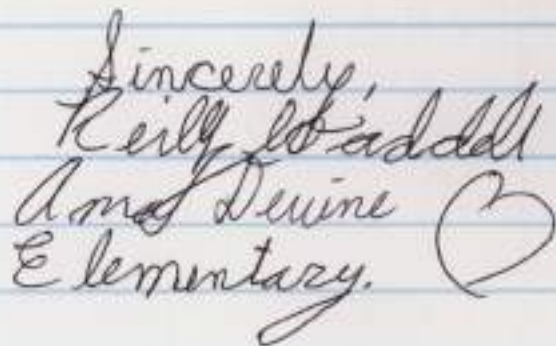 Sincerely,
Reilly Waddell
Amos Devine
Elementary.